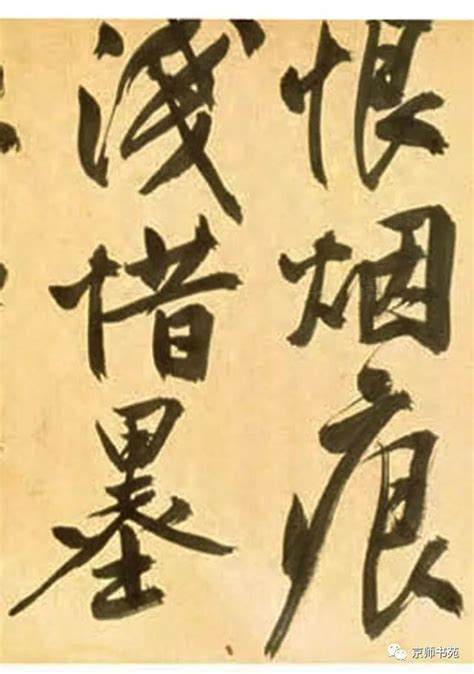 恨烟痕
淺惜墨
京师书苑